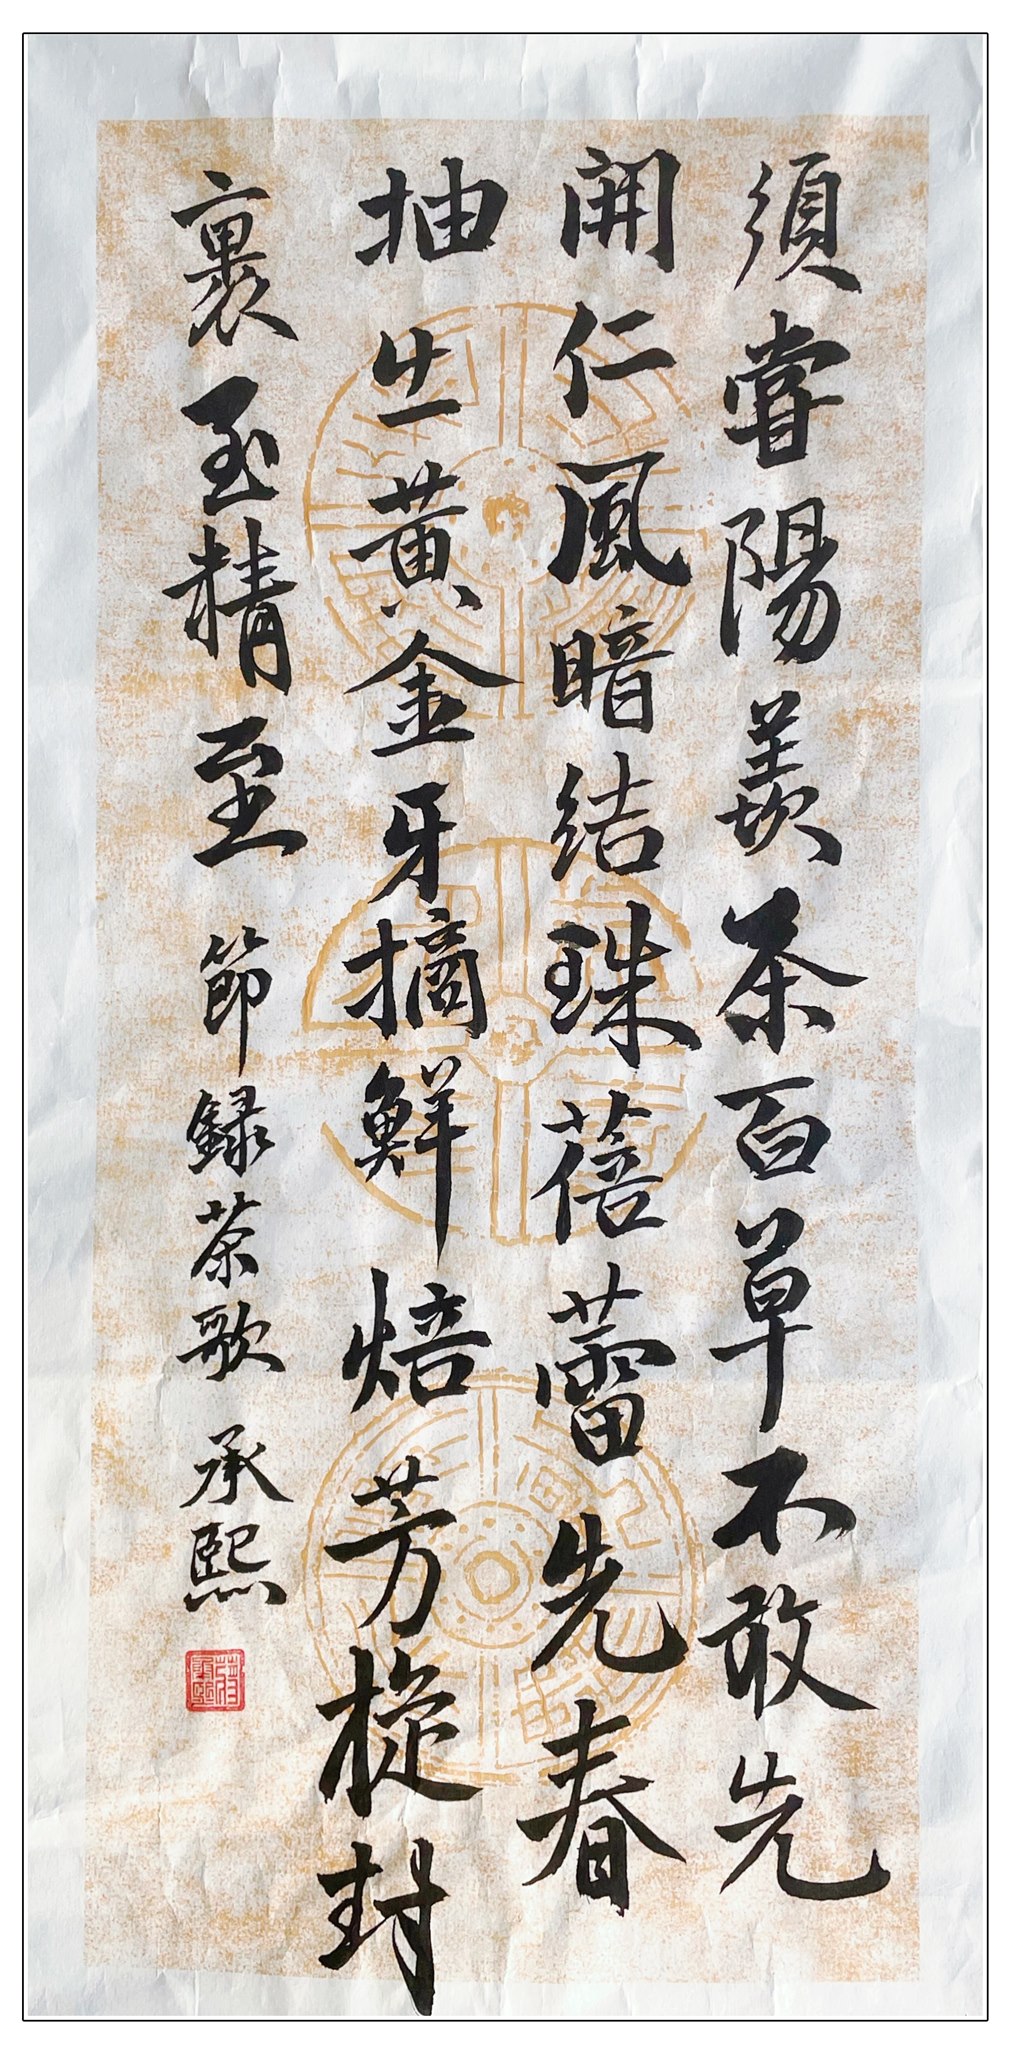 須嘗陽羨茶百草不敢先
開仁風暗結珠蓓蕾先春
抽出黄金牙摘鮮焙芳旋封
裹至精至 節録茶歌 承熙